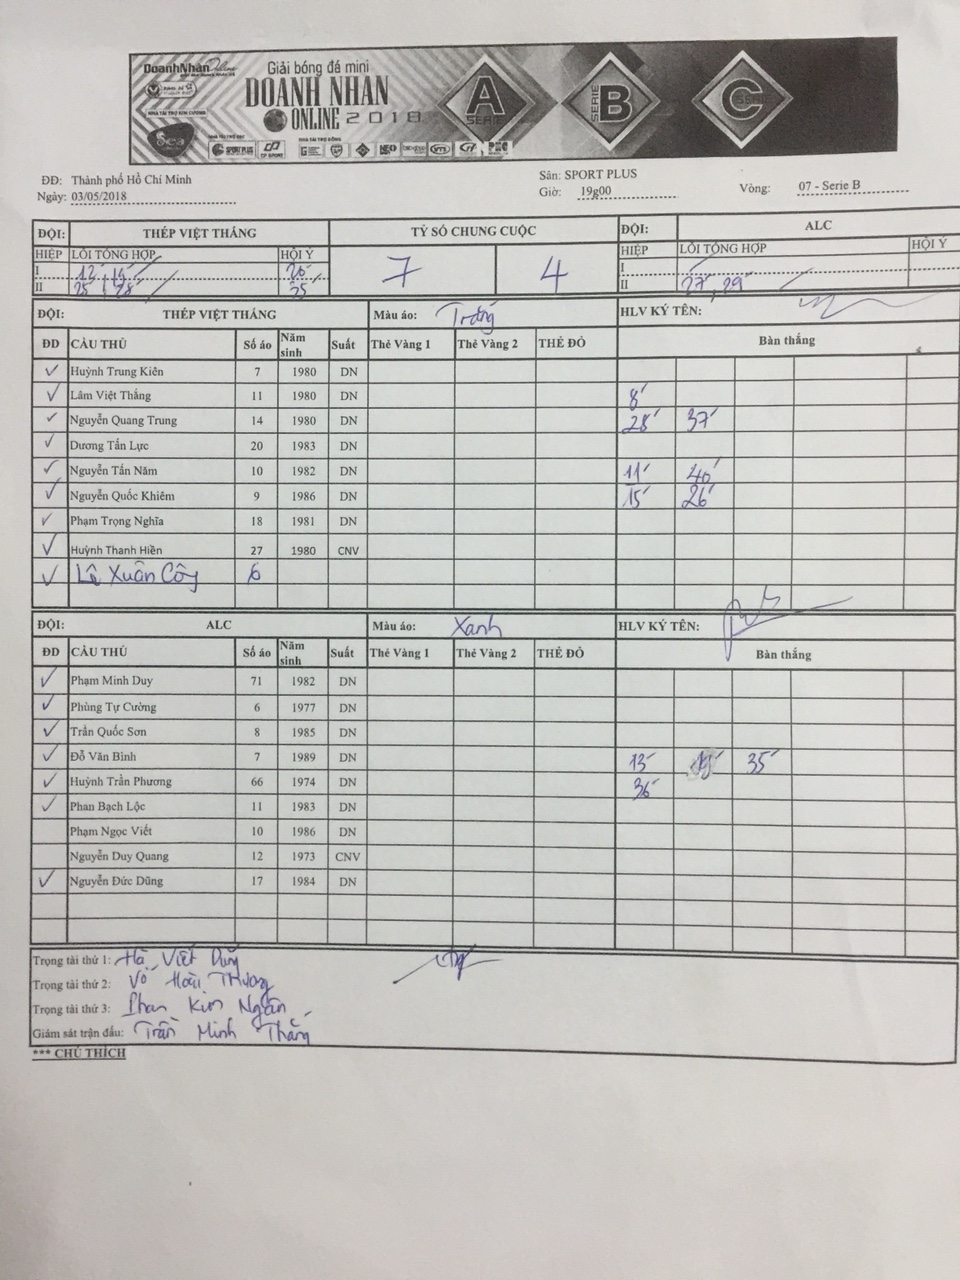 DoanhNhanOnline
Giải bóng đá mini
DOANH NHAN
ONLINE 2018
NHÀ TÀI TRỢ KIM CƯƠNG
Sea
SPORT PLUS
A SERIE
SERIE B
C SERIE
ĐĐ: Thành phố Hồ Chí Minh
Sân: SPORT PLUS
Ngày: 03/05/2018
Giờ: 19g00
Vòng: 07 - Serie B
ĐỘI: THÉP VIỆT THẮNG TỶ SỐ CHUNG CUỘC ĐỘI: ALC
HIỆP LỖI TỔNG HỢP HỘI Ý 7 4 HIỆP LỖI TỔNG HỢP HỘI Ý
I 12', 14' 20' I
II 25', 28' 35' II 27', 29'
ĐỘI: THÉP VIỆT THẮNG Màu áo: Trắng HLV KÝ TÊN:
ĐD CẦU THỦ Số áo Năm sinh Suất Thẻ Vàng 1 Thẻ Vàng 2 THẺ ĐỎ Bàn thắng
Huỳnh Trung Kiên 7 1980 DN
Lâm Việt Thắng 11 1980 DN 8'
Nguyễn Quang Trung 14 1980 DN 28' 37'
Dương Tấn Lực 20 1983 DN
Nguyễn Tấn Năm 10 1982 DN 11' 40'
Nguyễn Quốc Khiêm 9 1986 DN 15' 26'
Phạm Trọng Nghĩa 18 1981 DN
Huỳnh Thanh Hiền 27 1980 CNV
Lê Xuân Công 6
ĐỘI: ALC Màu áo: Xanh HLV KÝ TÊN:
ĐD CẦU THỦ Số áo Năm sinh Suất Thẻ Vàng 1 Thẻ Vàng 2 THẺ ĐỎ Bàn thắng
Phạm Minh Duy 71 1982 DN
Phùng Tự Cường 6 1977 DN
Trần Quốc Sơn 8 1985 DN
Đỗ Văn Bình 7 1989 DN 13' 19' 35'
Huỳnh Trần Phương 66 1974 DN 36'
Phan Bạch Lộc 11 1983 DN
Phạm Ngọc Viết 10 1986 DN
Nguyễn Duy Quang 12 1973 CNV
Nguyễn Đức Dũng 17 1984 DN
Trọng tài thứ 1: Hà Viết Dũng
Trọng tài thứ 2: Võ Hoài Thương
Trọng tài thứ 3: Phan Kim Ngân
Giám sát trận đấu: Trần Minh Thắng
*** CHÚ THÍCH